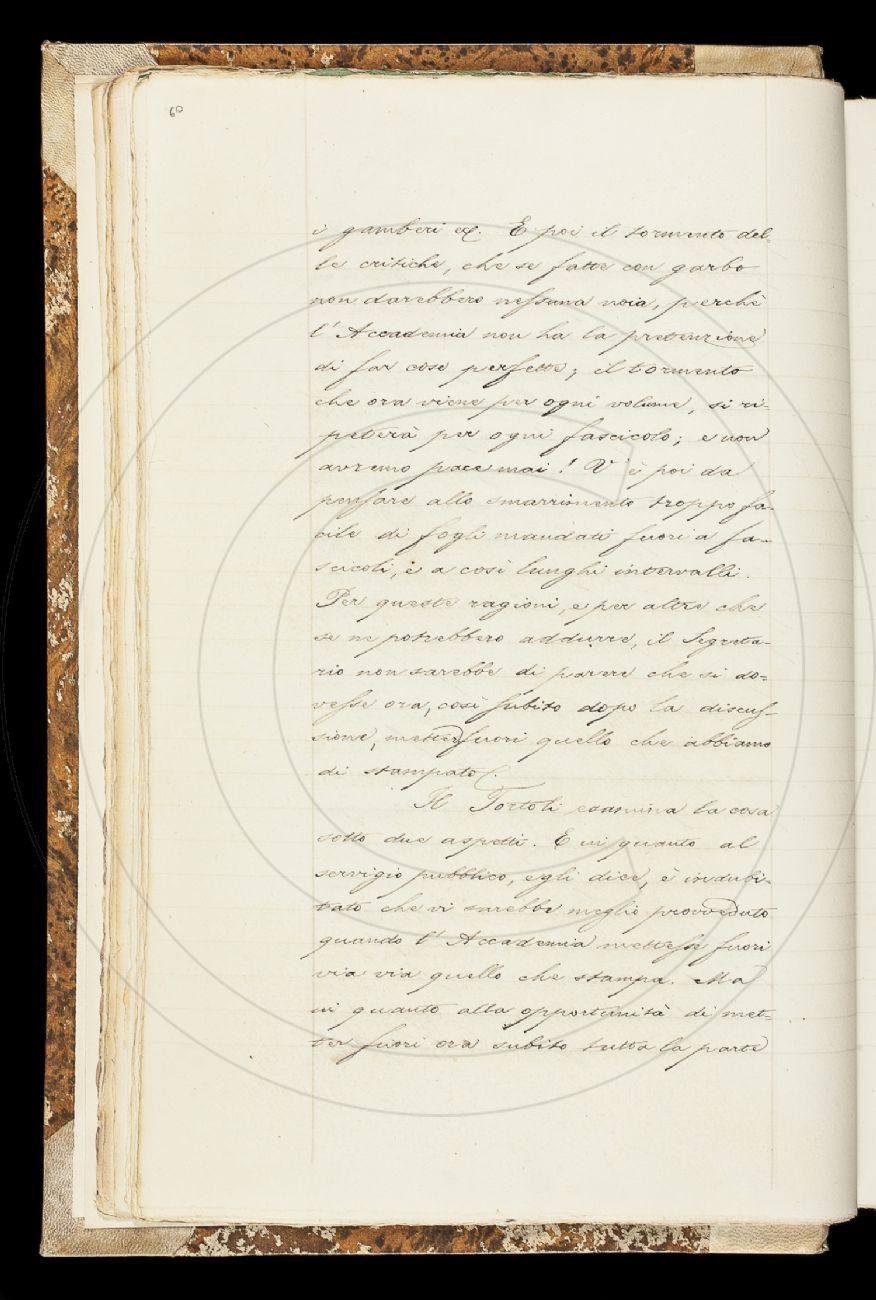 60
i gamberi ec. E poi il tormento del-
le critiche, che se fatte con garbo
non darebbero nessuna noia, perchè
l'Accademia non ha la pretenzione
di far cose perfette; il tormento
che ora viene per ogni volume, si ri-
peterà per ogni fascicolo; e non
avremo pace mai! V'è poi da
pensare allo smarrimento troppo fa-
cile di fogli mandati fuori a fa-
scicoli, e a così lunghi intervalli.
Per queste ragioni, e per altre che
se ne potrebbero addurre, il Segreta-
rio non sarebbe di parere che si do-
vesse ora, così subito dopo la discus-
sione, metter fuori quello che abbiamo
di stampato.
Il Tortoli esamina la cosa
sotto due aspetti. E in quanto al
servigio pubblico, egli dice, è indubi-
tato che vi sarebbe meglio provveduto
quando l'Accademia mettesse fuori
via via quello che stampa. Ma
in quanto alla opportunità di met-
ter fuori ora subito tutta la parte